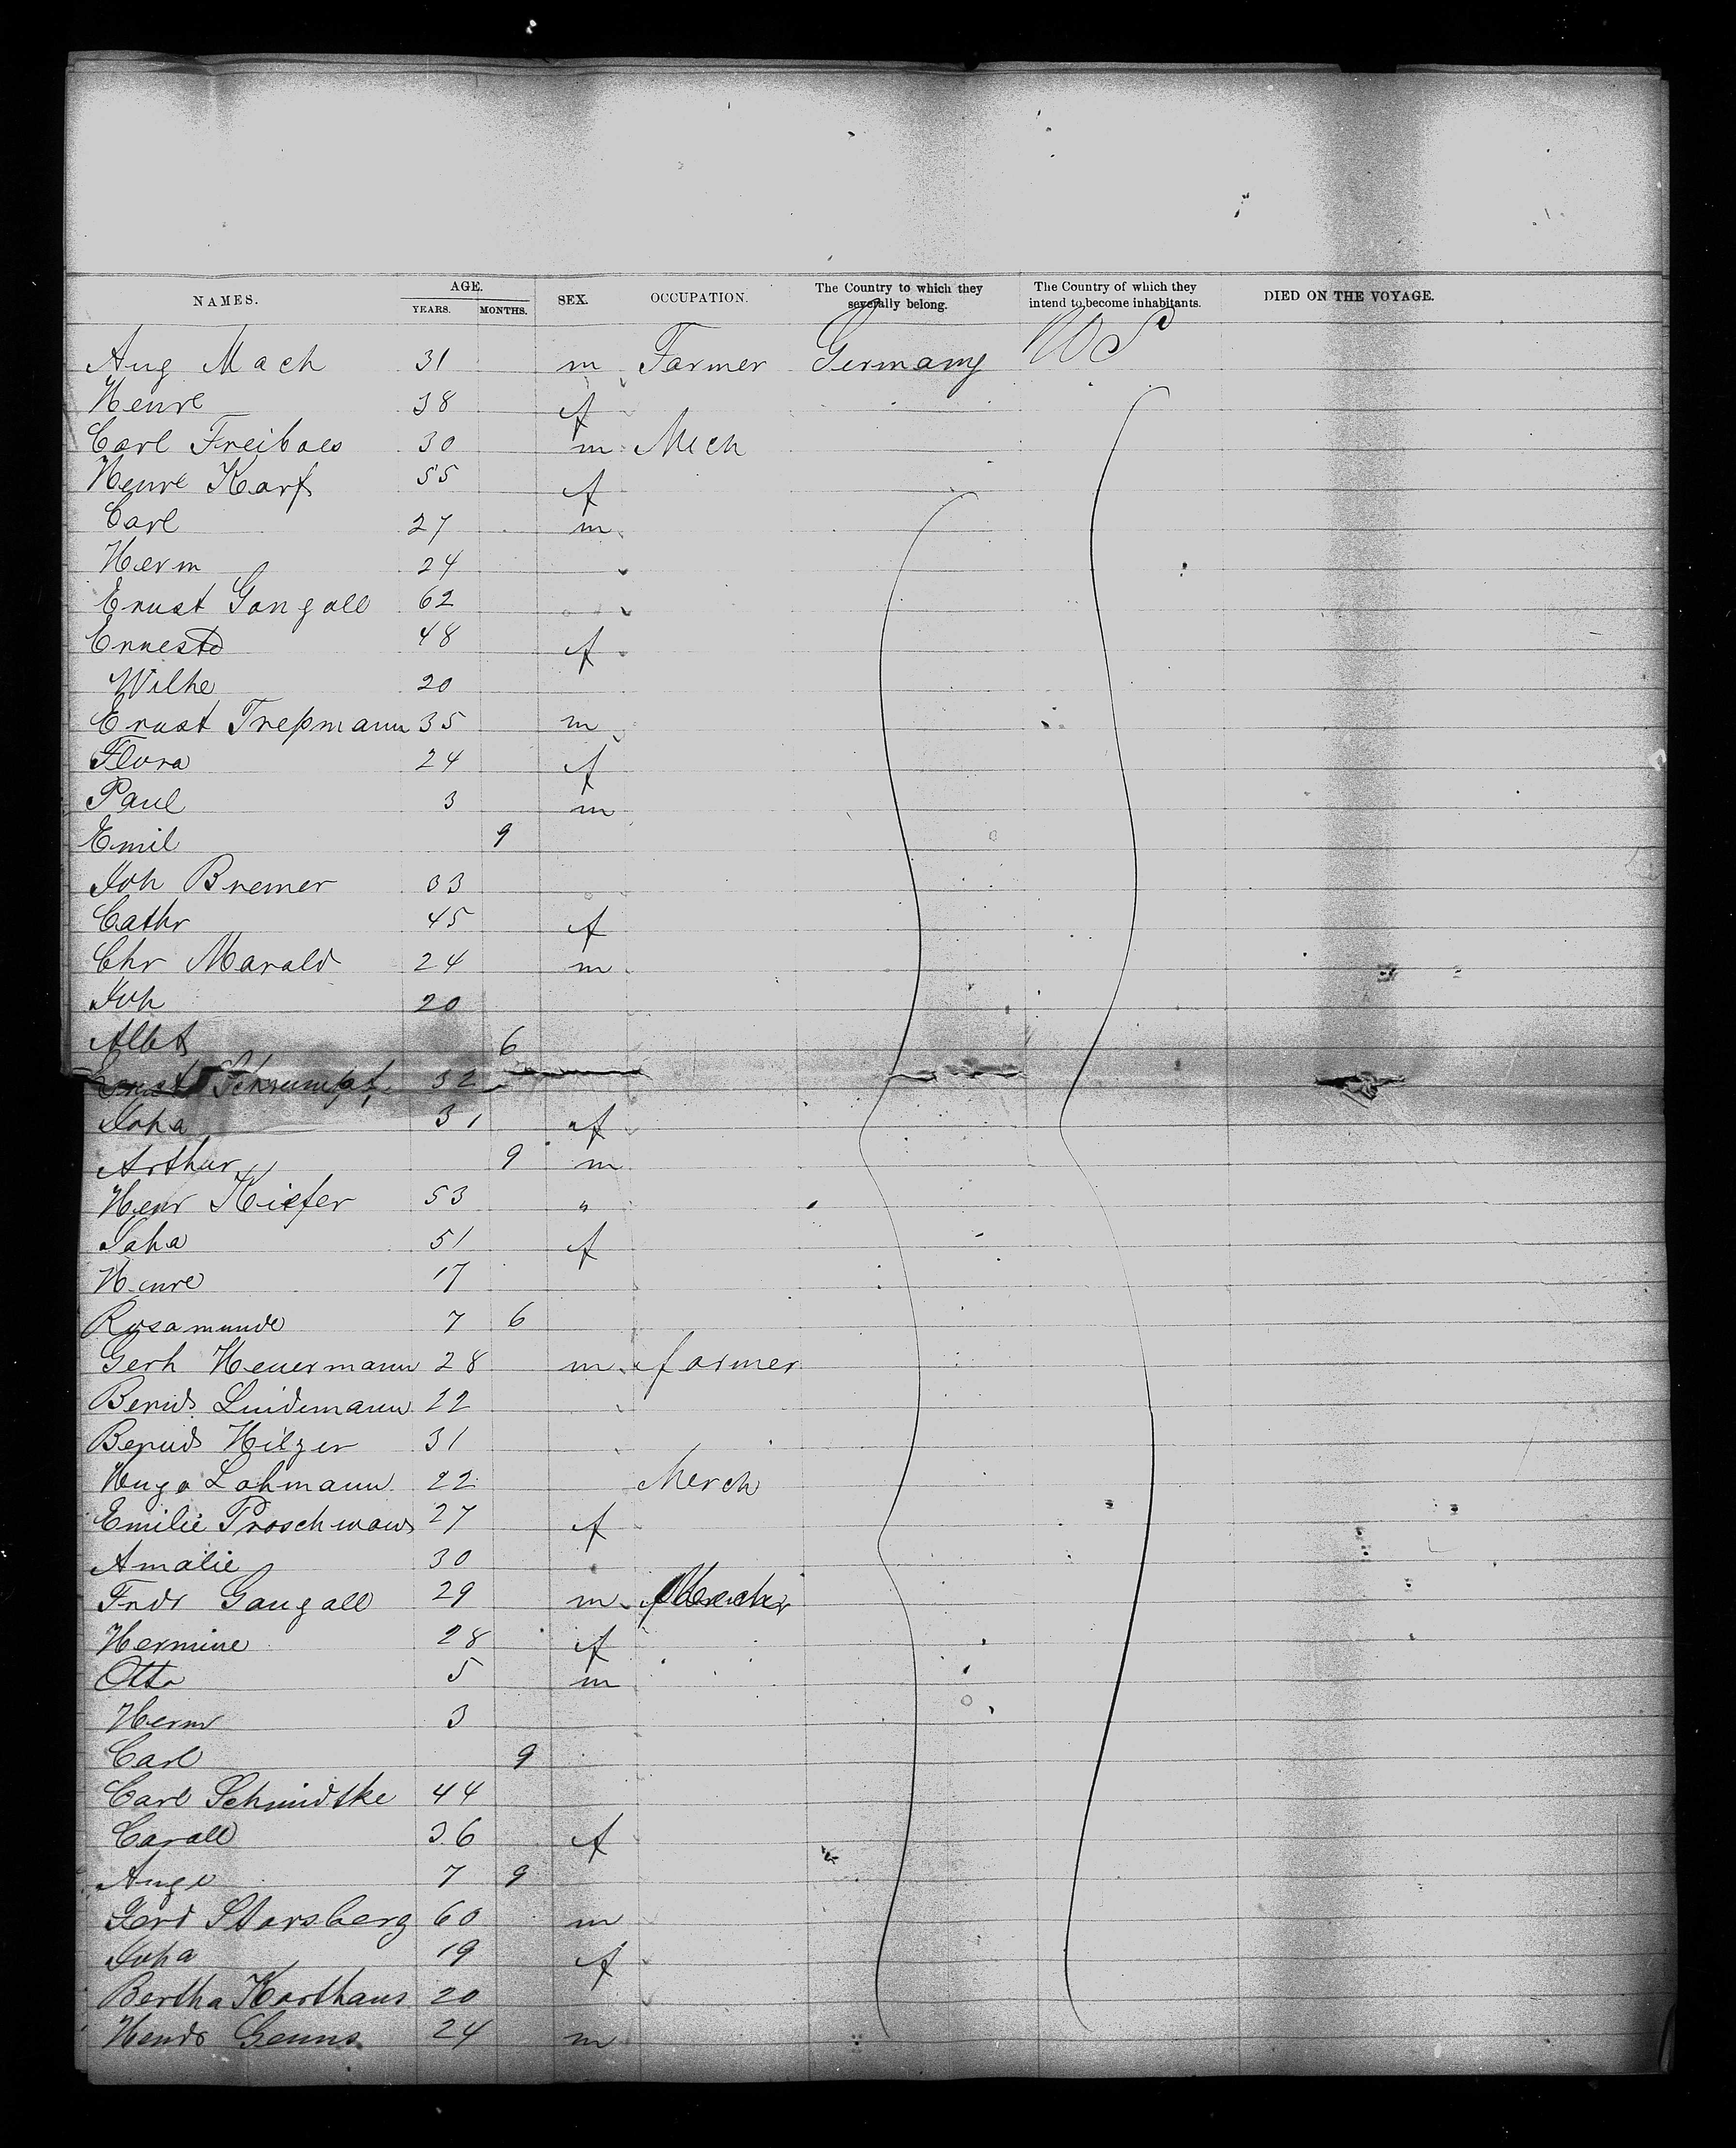 NAMES. AGE. YEARS. MONTHS. SEX. OCCUPATION. The Country to which they severally belong. The Country of which they intend to become inhabitants. DIED ON THE VOYAGE.
Aug Mach 31 m Farmer Germany US
Henre 38 f
Carl Freiboes 30 m Mech
Henre Karf 55 f
Carl 27 m
Herm 24
Ernst Gangall 62
Erneste 48 f
Wilhe 20
Ernst Treßmann 35 m
Flora 24 f
Paul 3 m
Emil 9
Joh Bremer 33
Cathr 45 f
Chr Marald 24 m
Joh 20
Albt 6
Ernst Schrumpf 32
Joha 31 f
Arthur 9 m
Henr Kiefer 53 "
Joha 51 f
Henre 17
Rosamunde 7 6
Gerh Heuermann 28 m farmer
Bernd Lindemann 22
Bernd Hilzer 31
Hugo Lohmann 22 Merch
Emilie Proschwows 27 f
Amalie 30
Fridr Gangall 29 m
Hermine 28 f
Otto 5 m
Herm 3
Carl 9
Carl Schmidtke 44
Caroll 36 f
Auge 7 9
Ferd Storsberg 60 m
Joha 19 f
Bertha Korthaus 20
Hendr Genns 24 m